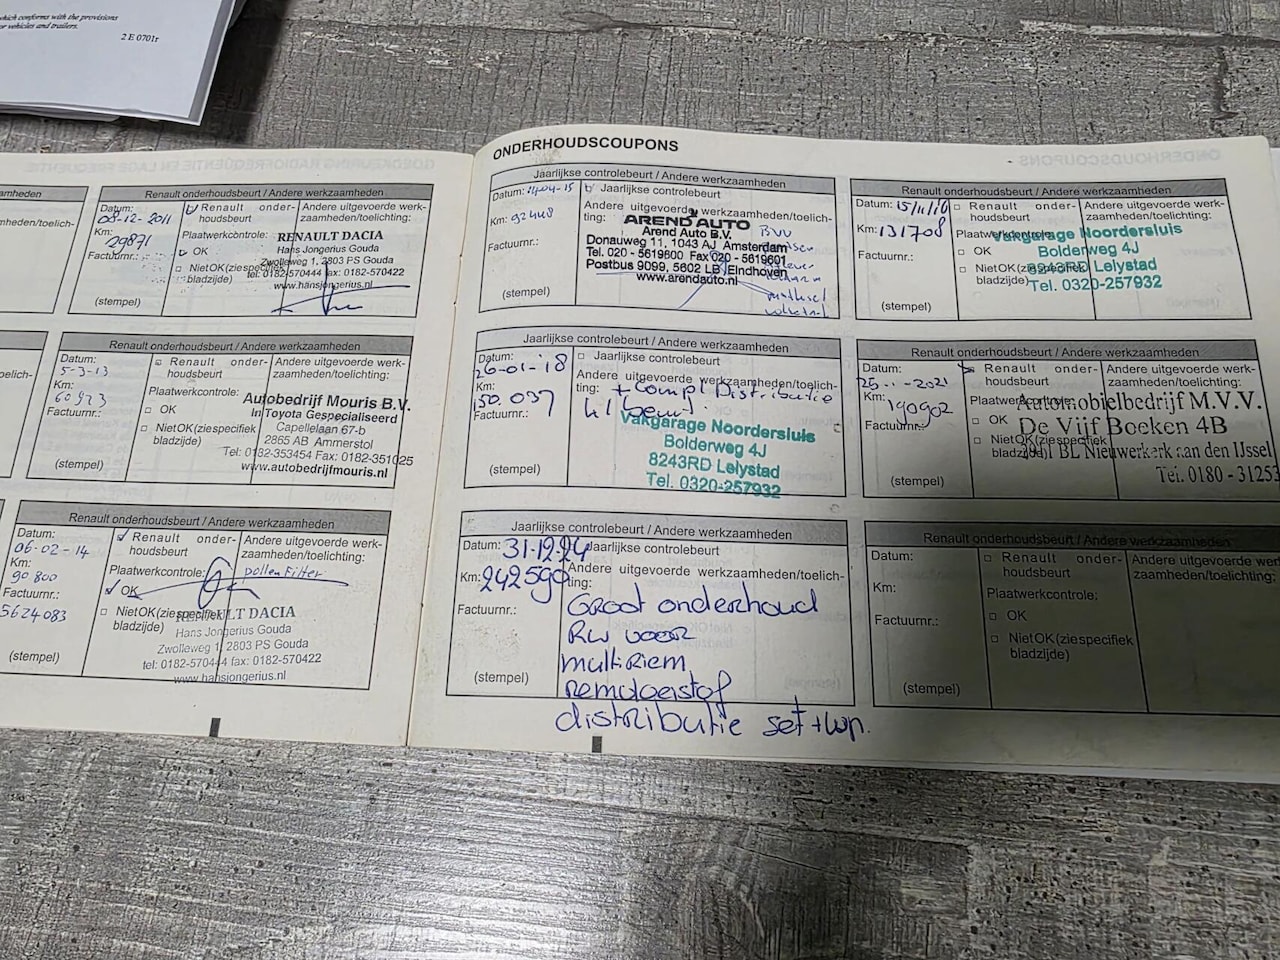 which conforms with the provisions
or vehicles and trailers.
2 E 0701r
Renault onderhoudsbeurt / Andere werkzaamheden
Datum:
08-12-2011
Km:
29871
Factuurnr.:
(stempel)
Renault onder-
houdsbeurt
Plaatwerkcontrole:
OK
NietOK(ziespecifiek
bladzijde)
Andere uitgevoerde werk-
zaamheden/toelichting:
RENAULT DACIA
Hans Jongerius Gouda
Zwolleweg 1, 2803 PS Gouda
tel: 0182-570444 fax: 0182-570422
www.hansjongerius.nl
Renault onderhoudsbeurt / Andere werkzaamheden
Datum:
5-3-13
Km:
60923
Factuurnr.:
(stempel)
Renault onder-
houdsbeurt
Plaatwerkcontrole:
OK
NietOK(ziespecifiek
bladzijde)
Andere uitgevoerde werk-
zaamheden/toelichting:
Autobedrijf Mouris B.V.
In Toyota Gespecialiseerd
Capellelaan 67-b
2865 AB Ammerstol
Tel: 0182-353454 Fax: 0182-351025
www.autobedrijfmouris.nl
Renault onderhoudsbeurt / Andere werkzaamheden
Datum:
06-02-14
Km:
90800
Factuurnr.:
5624083
(stempel)
Renault onder-
houdsbeurt
Plaatwerkcontrole:
OK
NietOK(ziespecifiek
bladzijde)
Andere uitgevoerde werk-
zaamheden/toelichting:
pollenfilter
RENAULT DACIA
Hans Jongerius Gouda
Zwolleweg 1, 2803 PS Gouda
tel: 0182-570444 fax: 0182-570422
www.hansjongerius.nl
ONDERHOUDSCOUPONS
Jaarlijkse controlebeurt / Andere werkzaamheden
Datum:
Km: 92448
Factuurnr.:
(stempel)
Jaarlijkse controlebeurt
Andere uitgevoerde werkzaamheden/toelich-
ting:
AREND AUTO
Arend Auto B.V.
Donauweg 11, 1043 AJ Amsterdam
020 - 5619600 Fax 020 - 5619601
Postbus 9099, 5602 LB Eindhoven
www.arendauto.nl
Renault onderhoudsbeurt / Andere werkzaamheden
Datum: 15/11/16
Km: 131708
Factuurnr.:
(stempel)
Renault onder-
houdsbeurt
Plaatwerkcontrole:
OK
NietOK(ziespecifiek
bladzijde)
Andere uitgevoerde werk-
zaamheden/toelichting:
Vakgarage Noordersluis
Bolderweg 4J
8243RD Lelystad
Tel. 0320-257932
Jaarlijkse controlebeurt / Andere werkzaamheden
Datum:
26-01-'18
Km:
150.037
Factuurnr.:
(stempel)
Jaarlijkse controlebeurt
Andere uitgevoerde werkzaamheden/toelich-
ting:
+ Compl Distributie
Vakgarage Noordersluis
Bolderweg 4J
8243RD Lelystad
Tel. 0320-257932
Renault onderhoudsbeurt / Andere werkzaamheden
Datum:
Km:
190902
Factuurnr.:
(stempel)
Renault onder-
houdsbeurt
Plaatwerkcontrole:
OK
NietOK(ziespecifiek
bladzijde)
Andere uitgevoerde werk-
zaamheden/toelichting:
Automobielbedrijf M.V.V.
De Vijf Boeken 4B
2911 BL Nieuwerkerk aan den IJssel
Tel. 0180 - 31253
Jaarlijkse controlebeurt / Andere werkzaamheden
Datum: 31-12-24
Km: 242590
Factuurnr.:
(stempel)
Jaarlijkse controlebeurt
Andere uitgevoerde werkzaamheden/toelich-
ting:
Groot onderhoud
RW voor
multiriem
remvloeistof
distributie set + wp.
Renault onderhoudsbeurt / Andere werkzaamheden
Datum:
Km:
Factuurnr.:
(stempel)
Renault onder-
houdsbeurt
Plaatwerkcontrole:
OK
NietOK(ziespecifiek
bladzijde)
Andere uitgevoerde werk-
zaamheden/toelichting: